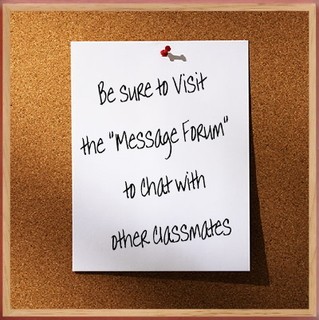 Be sure to Visit
the "Message Forum"
to Chat with
other Classmates